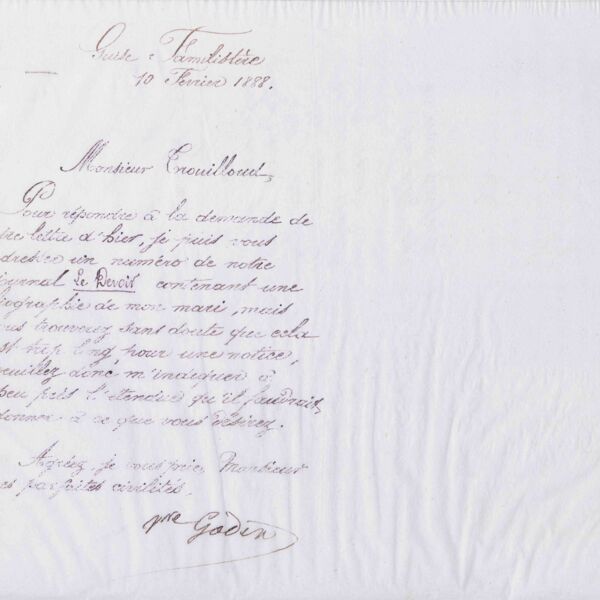 Guise - Familistère
10 Février 1888.
Monsieur Trouilloud,
Pour répondre à la demande de
tre lettre d'hier, je puis vous
dresser un numéro de notre
ournal Le Devoir contenant une
iographie de mon mari, mais
ous trouverez sans doute que cela
st trop long pour une notice,
euillez donc m'indiquer à
peu près l'étendue qu'il faudrait
donner à ce que vous désirez.
Agréez, je vous prie, Monsieur
es parfaites civilités,
Godin